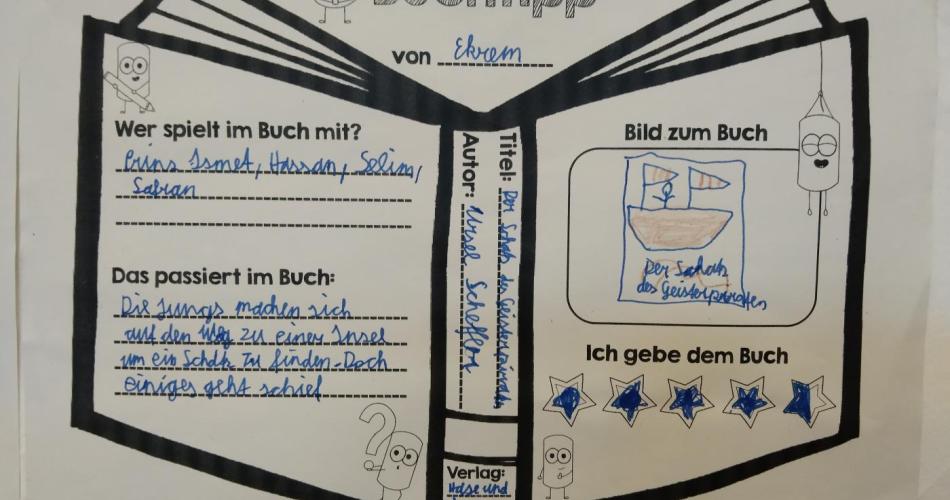 Buchtipp
von Ekrem
Wer spielt im Buch mit?
Prins Ismet, Hassan, Selim,
Safran
Das passiert im Buch:
Die Jungs machen sich
auf den Weg zu einer Insel
um ein Schatz zu finden. Doch
einiges geht schief
Titel: Der Schatz des Geisterpiraten
Autor: Ursel Scheffler
Verlag:
Hase und
Bild zum Buch
Der Schatz
des Geisterpiraten
Ich gebe dem Buch